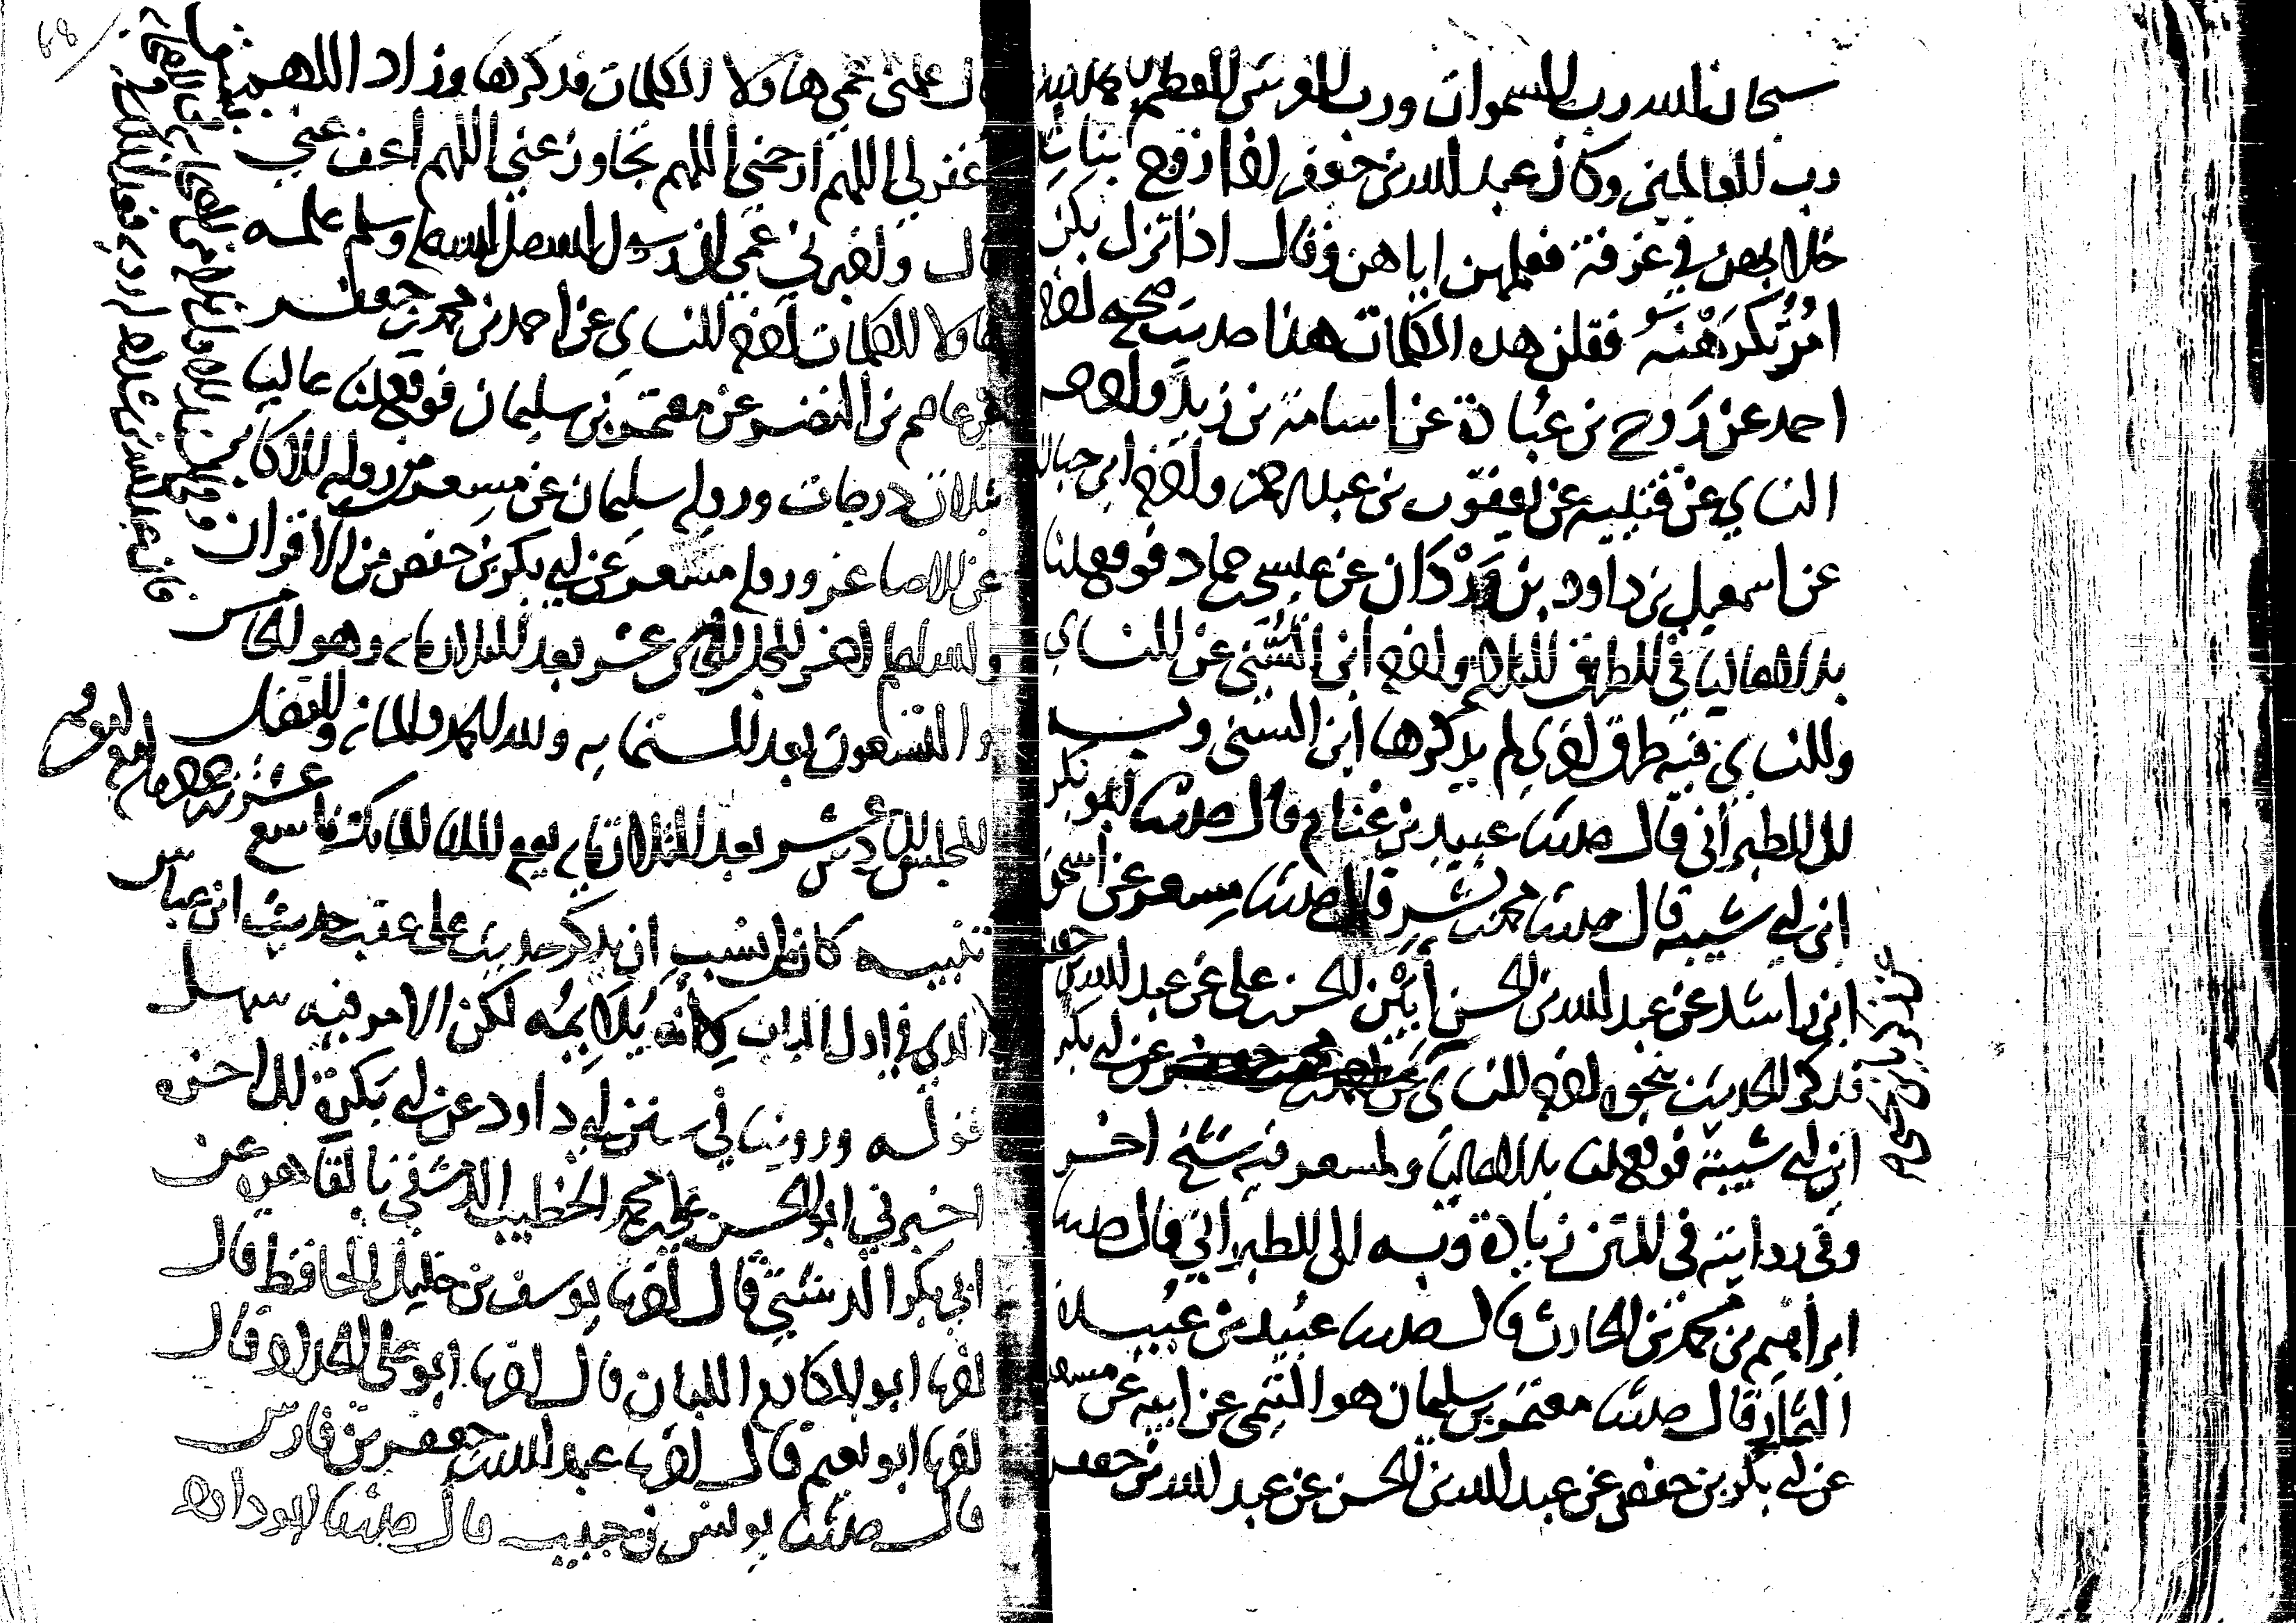 سبحان الله رب السموات ورب العرش العظيم الحمد لله
رب العالمين وكان عبد الله بن جعفر اذا زوج بناته
خلا بهن في غرفة فعلمهن اياهن وقال اذا نزل بكن
امر تكرهنه فقلن هذه الكلمات هذا حديث صحيح اخرجه
احمد عن روح بن عبادة عن اسامة بن زيد واخرجه
النساي عن قتيبة عن يعقوب بن عبد الرحمن واخرجه ابن حبان
عن اسمعيل بن داود بن وردان عن عيسى بن حماد فوقع لنا
بدلا عاليا في الطرق الثلاثة واخرجه ابن السني عن النساي
وللنساي فيه طرق اخرى لم يذكرها ابن السني وبه
الى الطبراني قال حدثنا عبيد بن غنام قال حدثنا ابو بكر
ابن ابي شيبة قال حدثنا محمد بن بشر قال حدثنا مسعر عن اسحق
ابن راشد عن عبد الله بن الحسن بن الحسن بن علي عن عبد الله بن جعفر
فذكر الحديث بنحوه اخرجه النساي عن عن ابي بكر
ابن ابي شيبة فوقع لنا بدلا عاليا ولمسعر فيه شيخ اخر
وفي روايته في المتن زيادة وبه الى الطبراني قال حدثنا
ابراهيم بن محمد بن الحارث قال حدثنا عبيد بن عبيدة
التمار قال حدثنا معتمر بن سليمان هو التيمي عن ابيه عن مسعر
عن ابي بكر بن حفص عن عبد الله بن الحسن عن عبد الله بن جعفر
قال علمني عمي هاولا الكلمات فذكرها وزاد اللهم
اغفر لي اللهم ارحمني اللهم تجاوز عني اللهم اعف عني
قال واخبرني عمي ان رسول الله صلى الله عليه وسلم علمه
هاولا الكلمات اخرجه النساي عن احمد بن محمد بن جعفر
عن عاصم بن النضر عن معتمر بن سليمان فوقع لنا عاليا
بثلاث درجات ورواية سليمان عن مسعر من رواية الاكابر
عن الاصاغر ورواية مسعر عن ابي بكر بن حفص من الاقران
والله اعلم اخر المجلس الخامس عشر بعد الثلاثماية وهو الخامس
والتسعون بعد الستماية ولله الحمد والمنة والفضل
المجلس السادس عشر بعد الثلاثماية يوم الثلاثا المبارك تاسع
تنبيه كان المناسب ان يذكر حديث علي عقب حديث ابن عباس
الذي في اول الباب لانه يلايمه لكن الامر فيه سهل
قوله وروينا في سنن ابي داود عن ابي بكرة الى اخره
اخبرني ابو الحسن علي بن محمد الخطيب الدمشقي بالقاهرة عن
ابي بكر الدشتي قال اخبرنا يوسف بن خليل الحافظ قال
اخبرنا ابو المكارم اللبان قال اخبرنا ابو علي الحداد قال
اخبرنا ابو نعيم قال اخبرنا عبد الله بن جعفر بن فارس
قال حدثنا يونس بن حبيب قال حدثنا ابو داود
68